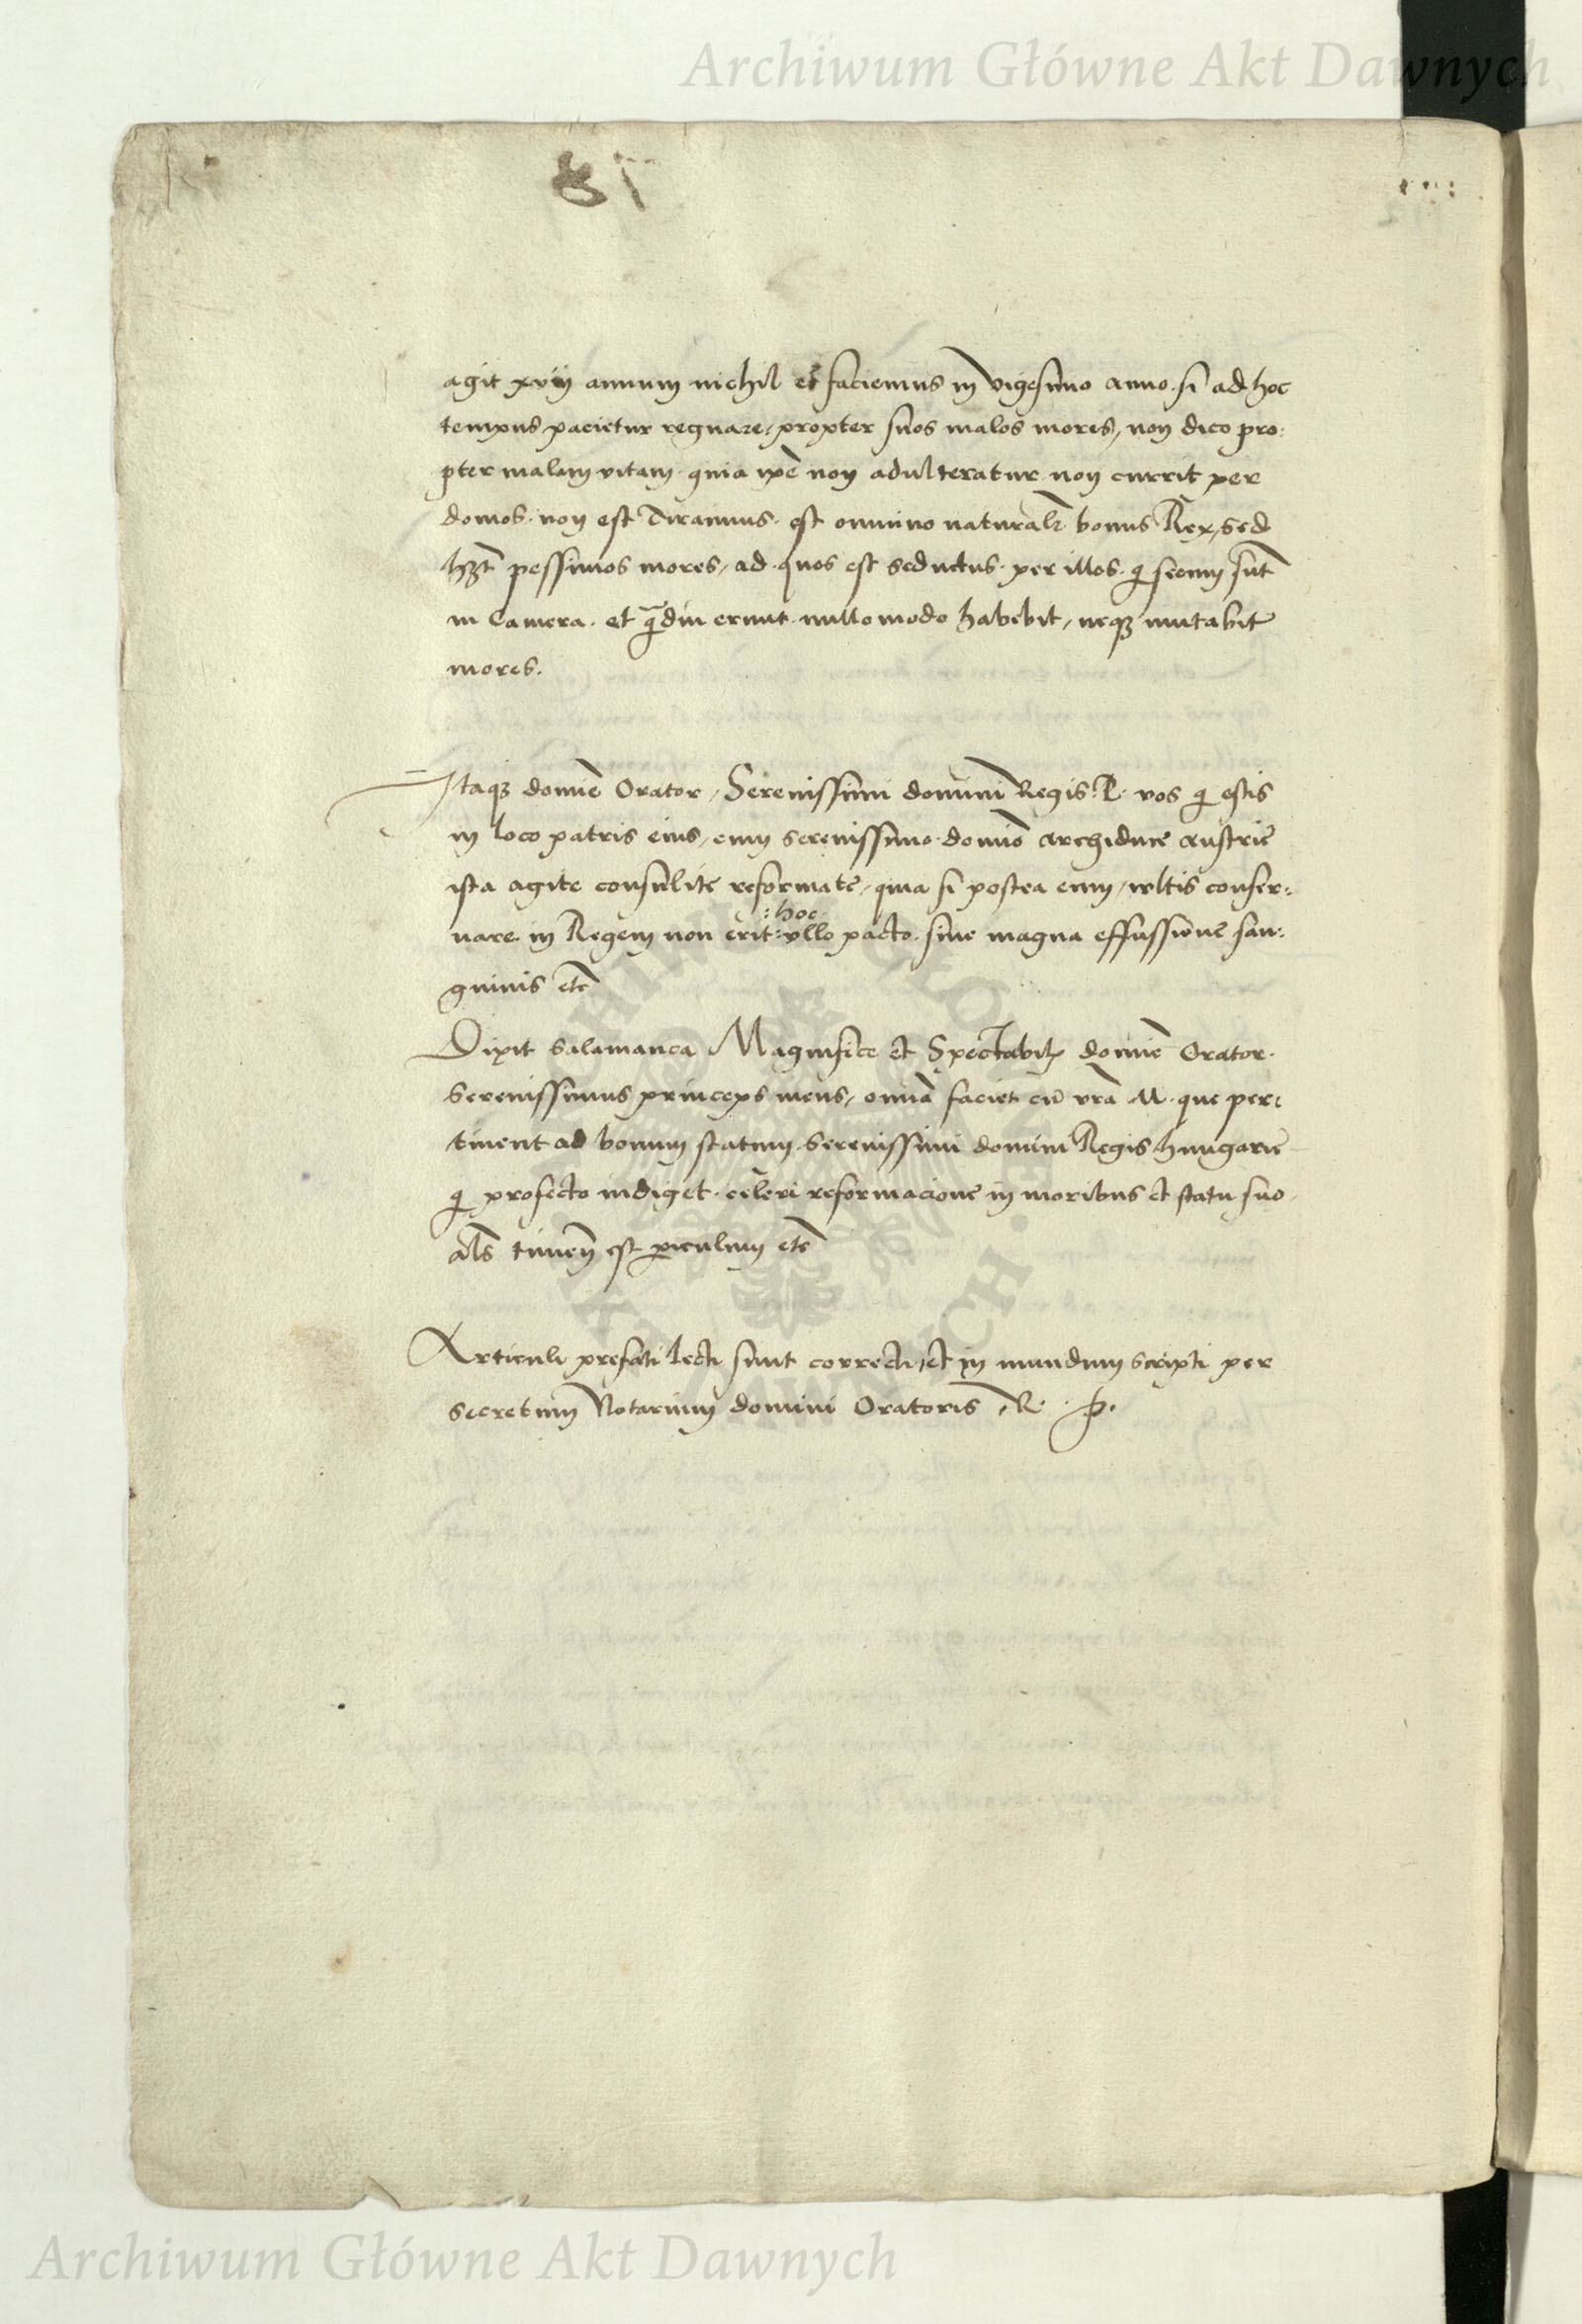 Archiwum Główne Akt Dawnych
87
agit xviij annum nichil ei faciemus in vigesimo anno. si ad hoc
tempus pacietur regnare, propter suos malos mores, non dico pro:
pter malam vitam. quia ipē non adulteratur non currit per
domos. non est Tirannus. est omnino naturalr̄ bonus Rex, sed
hȝt pessimos mores, ad quos est seductus. per illos. q secum sūt
in Camera. et q̄diu erunt. nullo modo habebit, neqȝ mutabit
mores.
Itaqȝ domīe Orator, Serenissimi domini Regis. P. vos q estis
in loco patris eius, cum serenissimo. domīo archiduce austrie
ista agite consulite reformate, quia si postea eum, vultis conser:
:hoc
uare in Regem non erit: vllo pacto. sine magna effussione san:
guinis etc̄
Dixit Salamanca Magnifice et Spectabilꝭ domīe Orator.
Serenissimus princeps meus, omīa faciet cū vrā M. que per:
tinent ad bonum statum. Serenissimi domini Regis hungarie
q profecto indiget. celeri reformacione in moribus et statu suo.
als̄ timeñ est periculum etc̄
Articuli prefati lecti sunt correcti, et in mundum scripti per
secretum Notarium domini Oratoris R. P.
Archiwum Główne Akt Dawnych